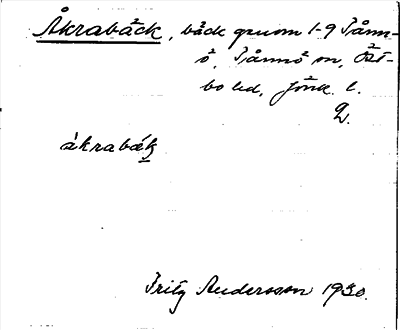 Åkrabäck, bäck genom 1-9 Tånn-
ö, Tånnö sn, Öst-
bo hd, Jönk. l.
åkrabäk
Fritz Andersson 1930.